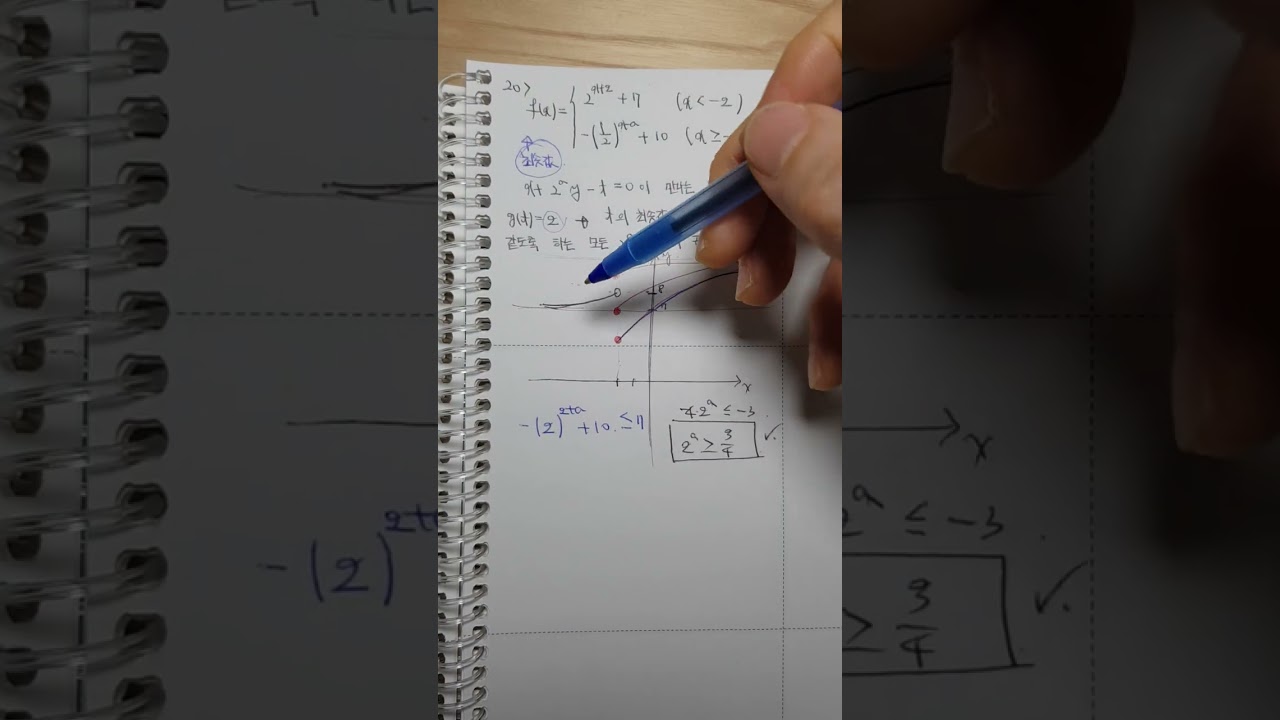 20>
f(x)= { 2^(x+2) + 7 (x < -2)
-(1/2)^(x+a) + 10 (x ≥ -
최솟값
x + 2^a y - t = 0 이 만나는
g(t) = 2, t의 최솟값
같도록 하는 모든
y
8
7
x
-(2)^(2+a) + 10. ≤ 7
4·2^a ≤ -3.
2^a ≥ 3/4 ✓.